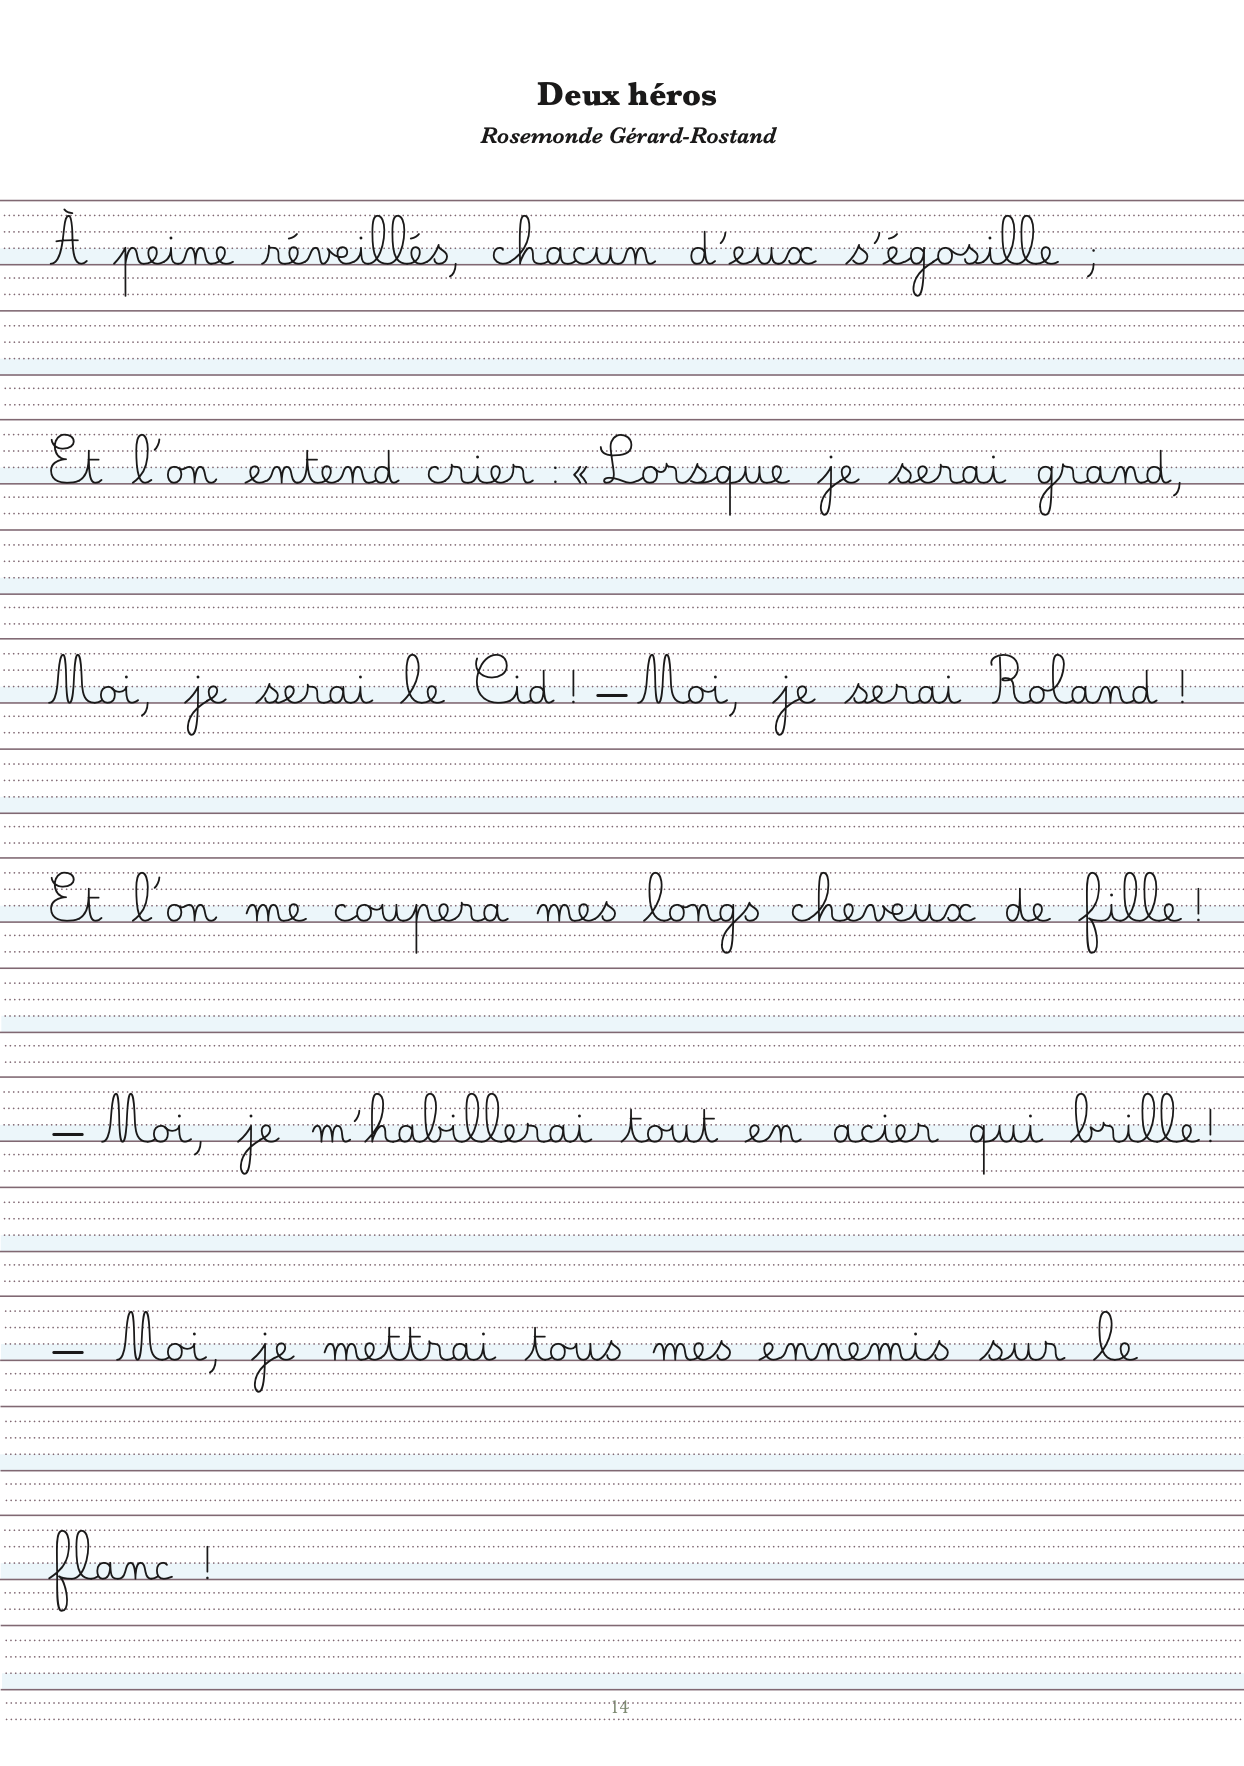 Deux héros
Rosemonde Gérard-Rostand
À peine réveillés, chacun d'eux s'égosille ;
Et l'on entend crier : « Lorsque je serai grand,
Moi, je serai le Cid ! — Moi, je serai Roland !
Et l'on me coupera mes longs cheveux de fille !
— Moi, je m'habillerai tout en acier qui brille !
— Moi, je mettrai tous mes ennemis sur le
flanc !
14